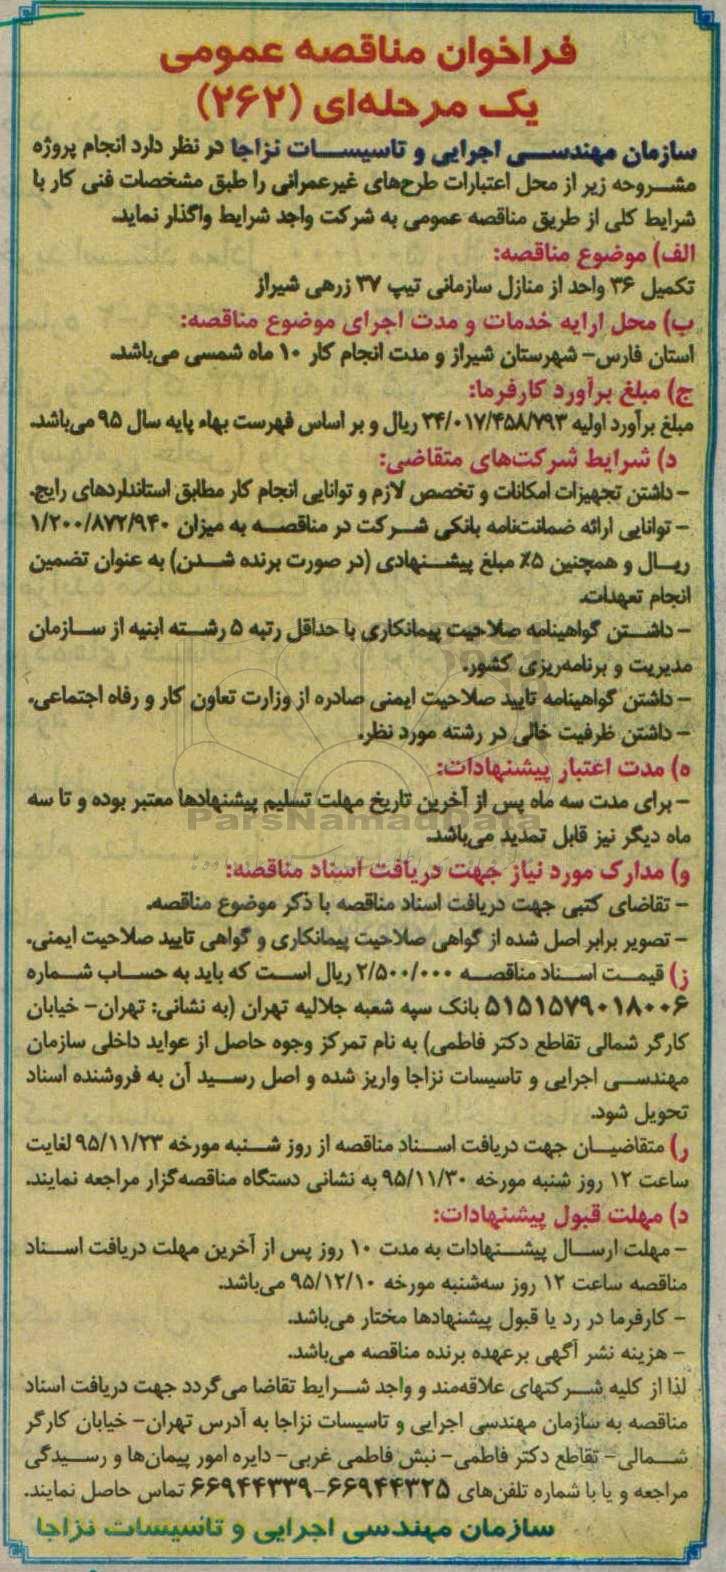 فراخوان مناقصه عمومی
یک مرحله‌ای (۲۶۲)
سازمان مهندسی اجرایی و تاسیسات نزاجا در نظر دارد انجام پروژه
مشروحه زیر از محل اعتبارات طرح‌های غیرعمرانی را طبق مشخصات فنی کار با
شرایط کلی از طریق مناقصه عمومی به شرکت واجد شرایط واگذار نماید.
الف) موضوع مناقصه:
تکمیل ۳۶ واحد از منازل سازمانی تیپ ۳۷ زرهی شیراز
ب) محل ارایه خدمات و مدت اجرای موضوع مناقصه:
استان فارس- شهرستان شیراز و مدت انجام کار ۱۰ ماه شمسی می‌باشد.
ج) مبلغ برآورد کارفرما:
مبلغ برآورد اولیه ۳۴/۰۱۷/۴۵۸/۷۹۳ ریال و بر اساس فهرست بهاء پایه سال ۹۵ می‌باشد.
د) شرایط شرکت‌های متقاضی:
- داشتن تجهیزات امکانات و تخصص لازم و توانایی انجام کار مطابق استانداردهای رایج.
- توانایی ارائه ضمانتنامه بانکی شرکت در مناقصه به میزان ۱/۲۰۰/۸۷۲/۹۴۰
ریال و همچنین ۵٪ مبلغ پیشنهادی (در صورت برنده شدن) به عنوان تضمین
انجام تعهدات.
- داشتن گواهینامه صلاحیت پیمانکاری با حداقل رتبه ۵ رشته ابنیه از سازمان
مدیریت و برنامه‌ریزی کشور.
- داشتن گواهینامه تایید صلاحیت ایمنی صادره از وزارت تعاون کار و رفاه اجتماعی.
- داشتن ظرفیت خالی در رشته مورد نظر.
ه) مدت اعتبار پیشنهادات:
- برای مدت سه ماه پس از آخرین تاریخ مهلت تسلیم پیشنهادها معتبر بوده و تا سه
ParsNamadData
ماه دیگر نیز قابل تمدید می‌باشد.
و) مدارک مورد نیاز جهت دریافت اسناد مناقصه:
- تقاضای کتبی جهت دریافت اسناد مناقصه با ذکر موضوع مناقصه.
- تصویر برابر اصل شده از گواهی صلاحیت پیمانکاری و گواهی تایید صلاحیت ایمنی.
ز) قیمت اسناد مناقصه ۲/۵۰۰/۰۰۰ ریال است که باید به حساب شماره
۵۱۵۱۵۷۹۰۱۸۰۰۶ بانک سپه شعبه جلالیه تهران (به نشانی: تهران- خیابان
کارگر شمالی تقاطع دکتر فاطمی) به نام تمرکز وجوه حاصل از عواید داخلی سازمان
مهندسی اجرایی و تاسیسات نزاجا واریز شده و اصل رسید آن به فروشنده اسناد
تحویل شود.
ر) متقاضیان جهت دریافت اسناد مناقصه از روز شنبه مورخه ۹۵/۱۱/۲۳ لغایت
ساعت ۱۲ روز شنبه مورخه ۹۵/۱۱/۳۰ به نشانی دستگاه مناقصه‌گزار مراجعه نمایند.
د) مهلت قبول پیشنهادات:
- مهلت ارسال پیشنهادات به مدت ۱۰ روز پس از آخرین مهلت دریافت اسناد
مناقصه ساعت ۱۲ روز سه‌شنبه مورخه ۹۵/۱۲/۱۰ می‌باشد.
- کارفرما در رد یا قبول پیشنهادها مختار می‌باشد.
- هزینه نشر آگهی برعهده برنده مناقصه می‌باشد.
لذا از کلیه شرکتهای علاقه‌مند و واجد شرایط تقاضا می‌گردد جهت دریافت اسناد
مناقصه به سازمان مهندسی اجرایی و تاسیسات نزاجا به آدرس تهران- خیابان کارگر
شمالی- تقاطع دکتر فاطمی- نبش فاطمی غربی- دایره امور پیمان‌ها و رسیدگی
مراجعه و یا با شماره تلفن‌های ۶۶۹۴۴۳۲۵-۶۶۹۴۴۳۳۹ تماس حاصل نمایند.
سازمان مهندسی اجرایی و تاسیسات نزاجا